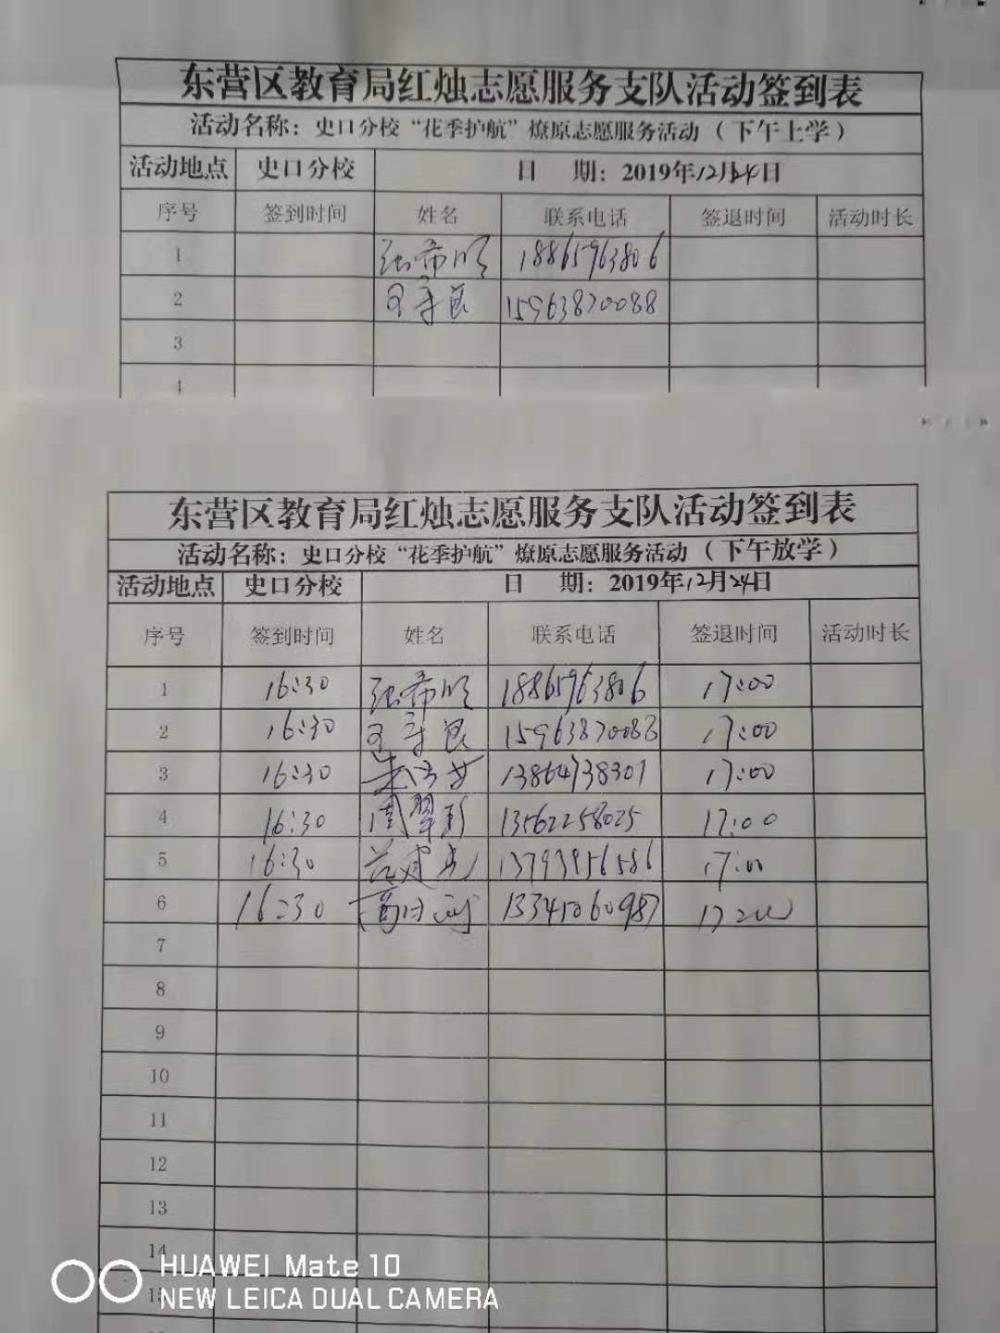 东营区教育局红烛志愿服务支队活动签到表
活动名称：史口分校“花季护航”燎原志愿服务活动（下午上学）
活动地点 史口分校 日 期：2019年12月24日
序号 签到时间 姓名 联系电话 签退时间 活动时长
1 张希明 18865963806
2 15963870088
3
4
东营区教育局红烛志愿服务支队活动签到表
活动名称：史口分校“花季护航”燎原志愿服务活动（下午放学）
活动地点 史口分校 日 期：2019年12月24日
序号 签到时间 姓名 联系电话 签退时间 活动时长
1 16:30 张希明 18865963806 17:00
2 16:30 15963870088 17:00
3 16:30 13864738301 17:00
4 16:30 周翠彩 13562258025 17:00
5 16:30 13793956586 17:00
6 16:30 13341060987
7
8
9
10
11
12
13
14
HUAWEI Mate 10
NEW LEICA DUAL CAMERA